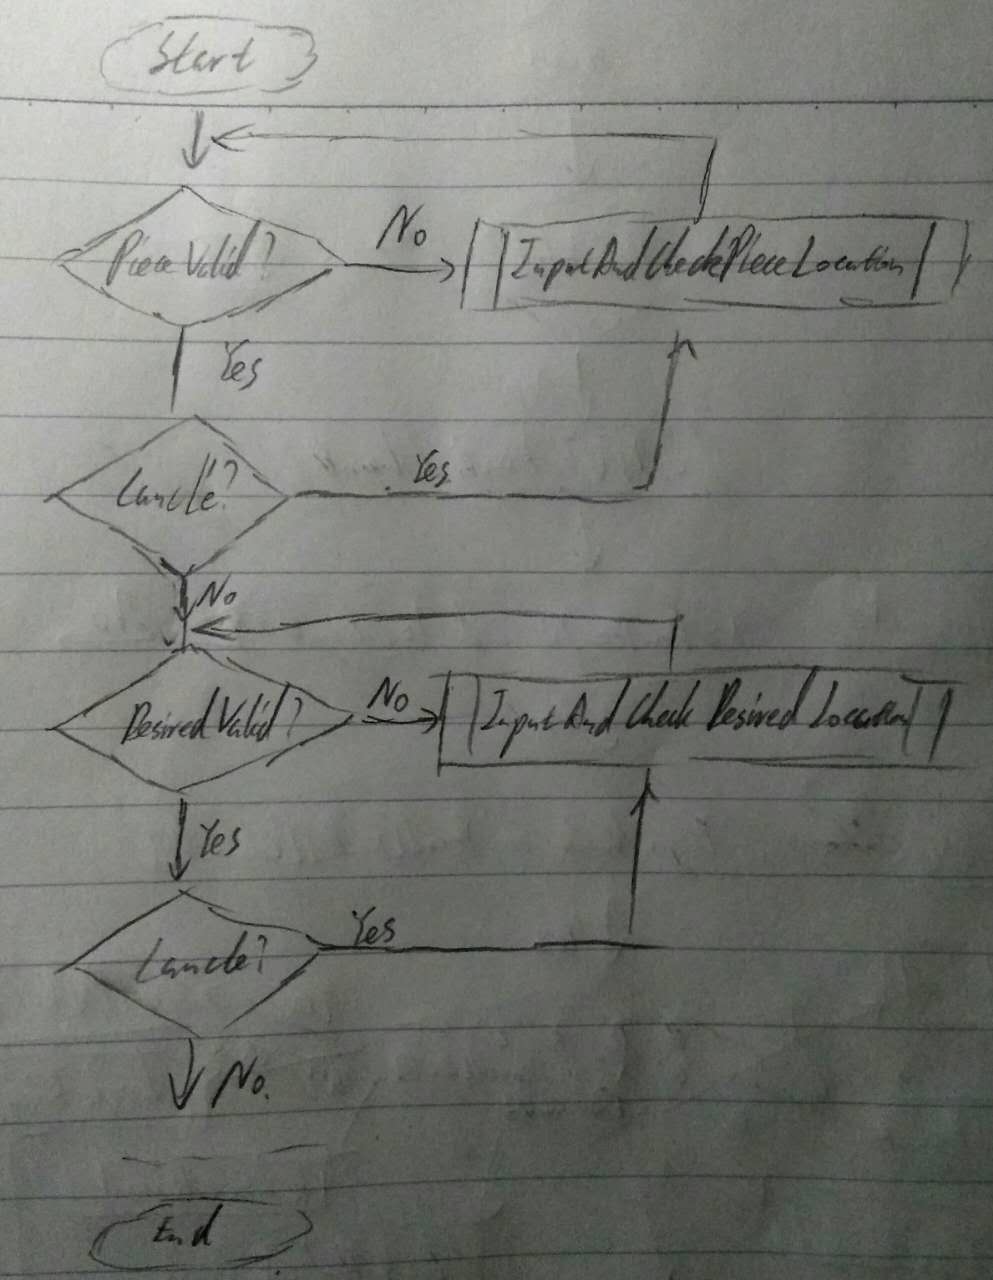 Start
Piece Valid?
No
InputAndCheckPieceLocation
Yes
Cancle?
Yes
No
Desired Valid?
No
Input And Check Desired Location
Yes
Cancle?
Yes
No.
End